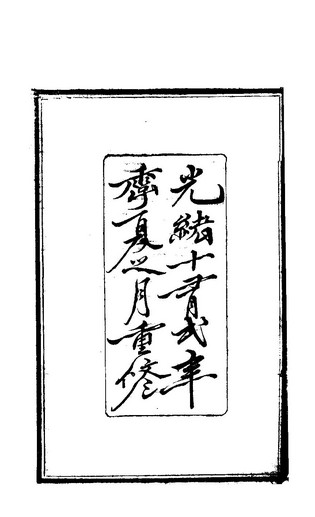 光緒十有弍年
齊夏之月重修